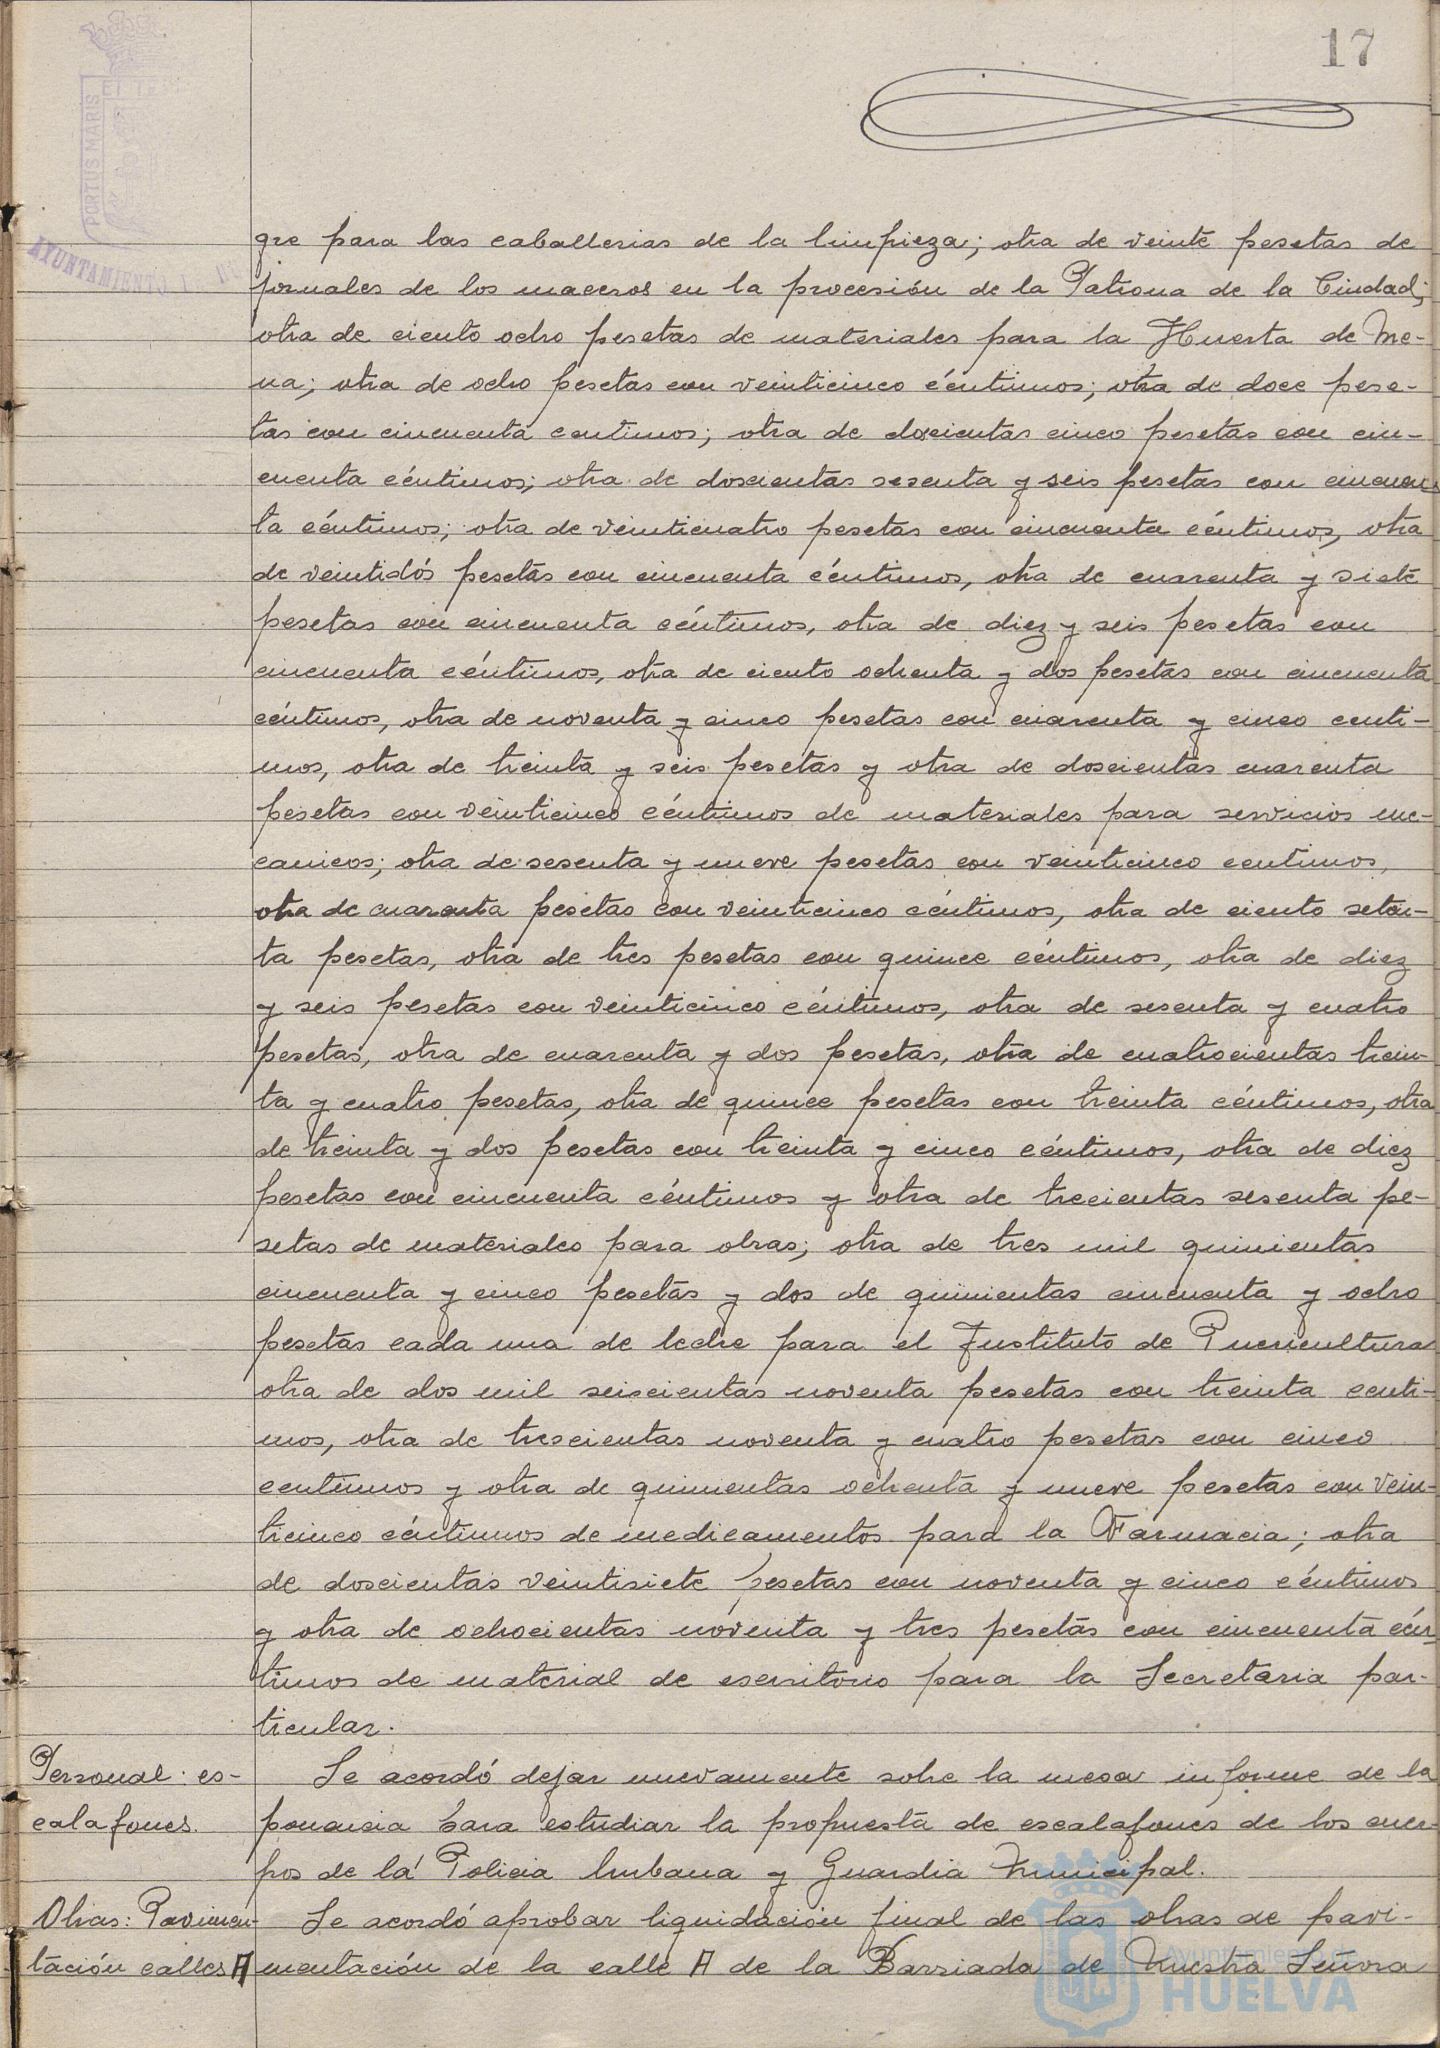 17
PORTUS MARIS
AYUNTAMIENTO
gre para las caballerias de la limpieza; otra de veinte pesetas de
jornales de los maceros en la procesión de la Patrona de la Ciudad;
otra de ciento ocho pesetas de materiales para la Huerta de Me-
na; otra de ocho pesetas con veinticinco céntimos; otra de doce pese-
tas con cincuenta centimos; otra de doscientas cinco pesetas con cin-
cuenta céntimos; otra de doscientas sesenta y seis pesetas con cincuen-
ta céntimos; otra de veinticuatro pesetas con cincuenta céntimos, otra
de veintidós pesetas con cincuenta céntimos, otra de cuarenta y siete
pesetas con cincuenta céntimos, otra de diez y seis pesetas con
cincuenta céntimos, otra de ciento ochenta y dos pesetas con cincuenta
céntimos, otra de noventa y cinco pesetas con cuarenta y cinco centi-
mos, otra de treinta y seis pesetas y otra de doscientas cuarenta
pesetas con veinticinco céntimos de materiales para servicios me-
canicos; otra de sesenta y nueve pesetas con veinticinco centimos,
otra de cuarenta pesetas con veinticinco céntimos, otra de ciento seten-
ta pesetas, otra de tres pesetas con quince céntimos, otra de diez
y seis pesetas con veinticinco céntimos, otra de sesenta y cuatro
pesetas, otra de cuarenta y dos pesetas, otra de cuatrocientas trein-
ta y cuatro pesetas, otra de quince pesetas con treinta céntimos, otra
de treinta y dos pesetas con treinta y cinco céntimos, otra de diez
pesetas con cincuenta céntimos y otra de trecientas sesenta pe-
setas de materiales para obras; otra de tres mil quinientas
cincuenta y cinco pesetas y dos de quinientas cincuenta y ocho
pesetas cada una de leche para el Instituto de Puericultura
otra de dos mil seiscientas noventa pesetas con treinta centi-
mos, otra de trescientas noventa y cuatro pesetas con cinco
centimos y otra de quinientas ochenta y nueve pesetas con vein-
ticinco céntimos de medicamentos para la Farmacia; otra
de doscientas veintisiete pesetas con noventa y cinco céntimos
y otra de ochocientas noventa y tres pesetas con cincuenta cén-
timos de material de escritorio para la Secretaria par-
ticular.
Personal: es-
calafones.
Se acordó dejar nuevamente sobre la mesa informe de la
ponencia para estudiar la propuesta de escalafones de los cuer-
pos de la Policia Urbana y Guardia Municipal.
Obras: Pavimen-
tación calles A
Se acordó aprobar liquidación final de las obras de pavi-
mentación de la calle A de la Barriada de Nuestra Señora
Ayuntamiento de
HUELVA